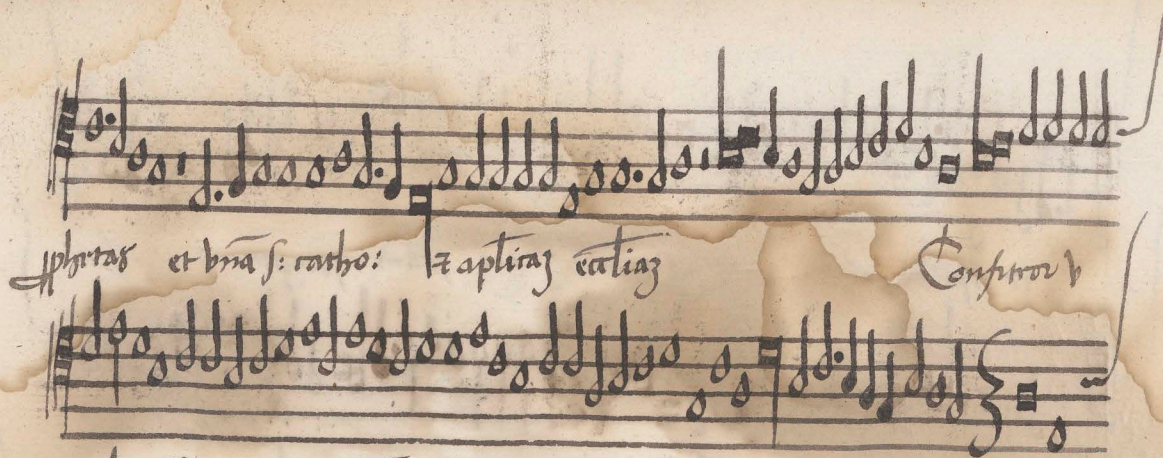 ꝓphetas et vnā s: catho: ⁊ apl̄icaʒ eccl̄iaʒ Confiteor v